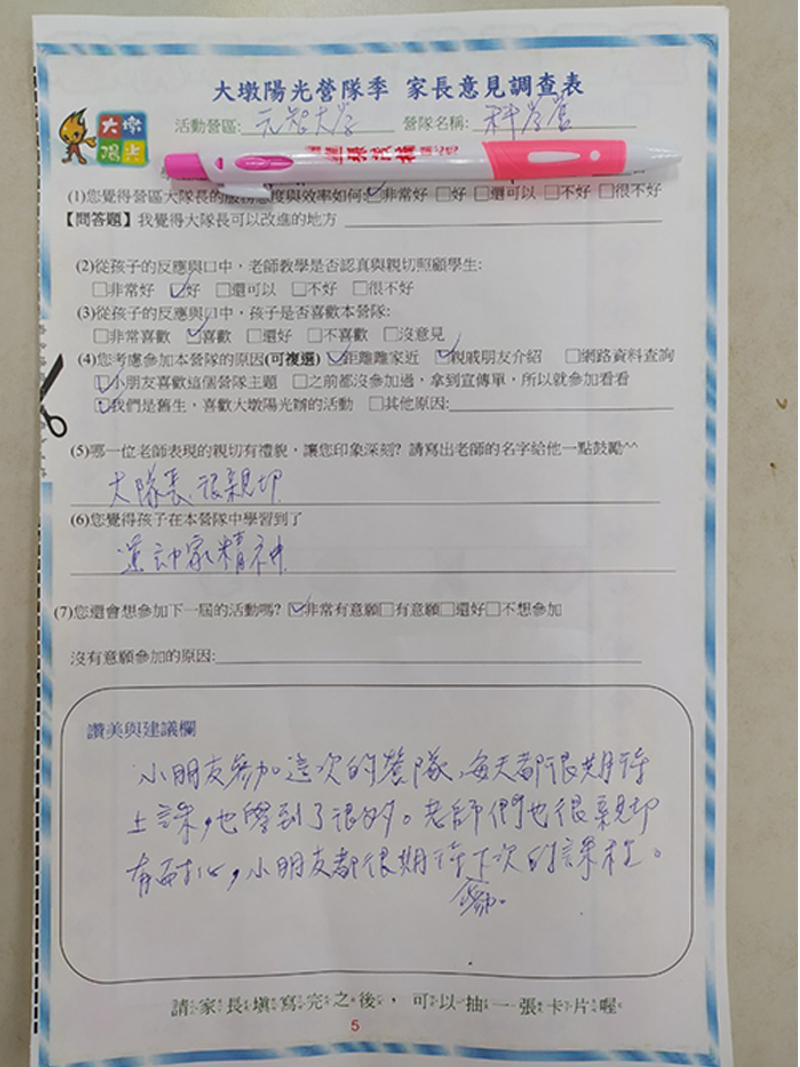 大墩陽光營隊季 家長意見調查表
大墩
陽光
活動營區: 元智大學 營隊名稱: 科學營
(1)您覺得營區大隊長的服務態度與效率如何: ☑非常好 □好 □還可以 □不好 □很不好
【問答題】我覺得大隊長可以改進的地方
(2)從孩子的反應與口中，老師教學是否認真與親切照顧學生:
□非常好 ☑好 □還可以 □不好 □很不好
(3)從孩子的反應與口中，孩子是否喜歡本營隊:
□非常喜歡 ☑喜歡 □還好 □不喜歡 □沒意見
(4)您考慮參加本營隊的原因(可複選) ☑距離離家近 ☑親戚朋友介紹 □網路資料查詢
☑小朋友喜歡這個營隊主題 □之前都沒參加過，拿到宣傳單，所以就參加看看
☑我們是舊生，喜歡大墩陽光辦的活動 □其他原因:
(5)哪一位老師表現的親切有禮貌，讓您印象深刻? 請寫出老師的名字給他一點鼓勵^^
大隊長很親切
(6)您覺得孩子在本營隊中學習到了
運動家精神
(7)您還會想參加下一屆的活動嗎? ☑非常有意願□有意願□還好□不想參加
沒有意願參加的原因:
讚美與建議欄
小朋友參加這次的營隊，每天都很期待
上課，也學到了很多。老師們也很親切
有耐心，小朋友都很期待下次的課程。
參加。
請家長填寫完之後，可以抽一張卡片喔
5